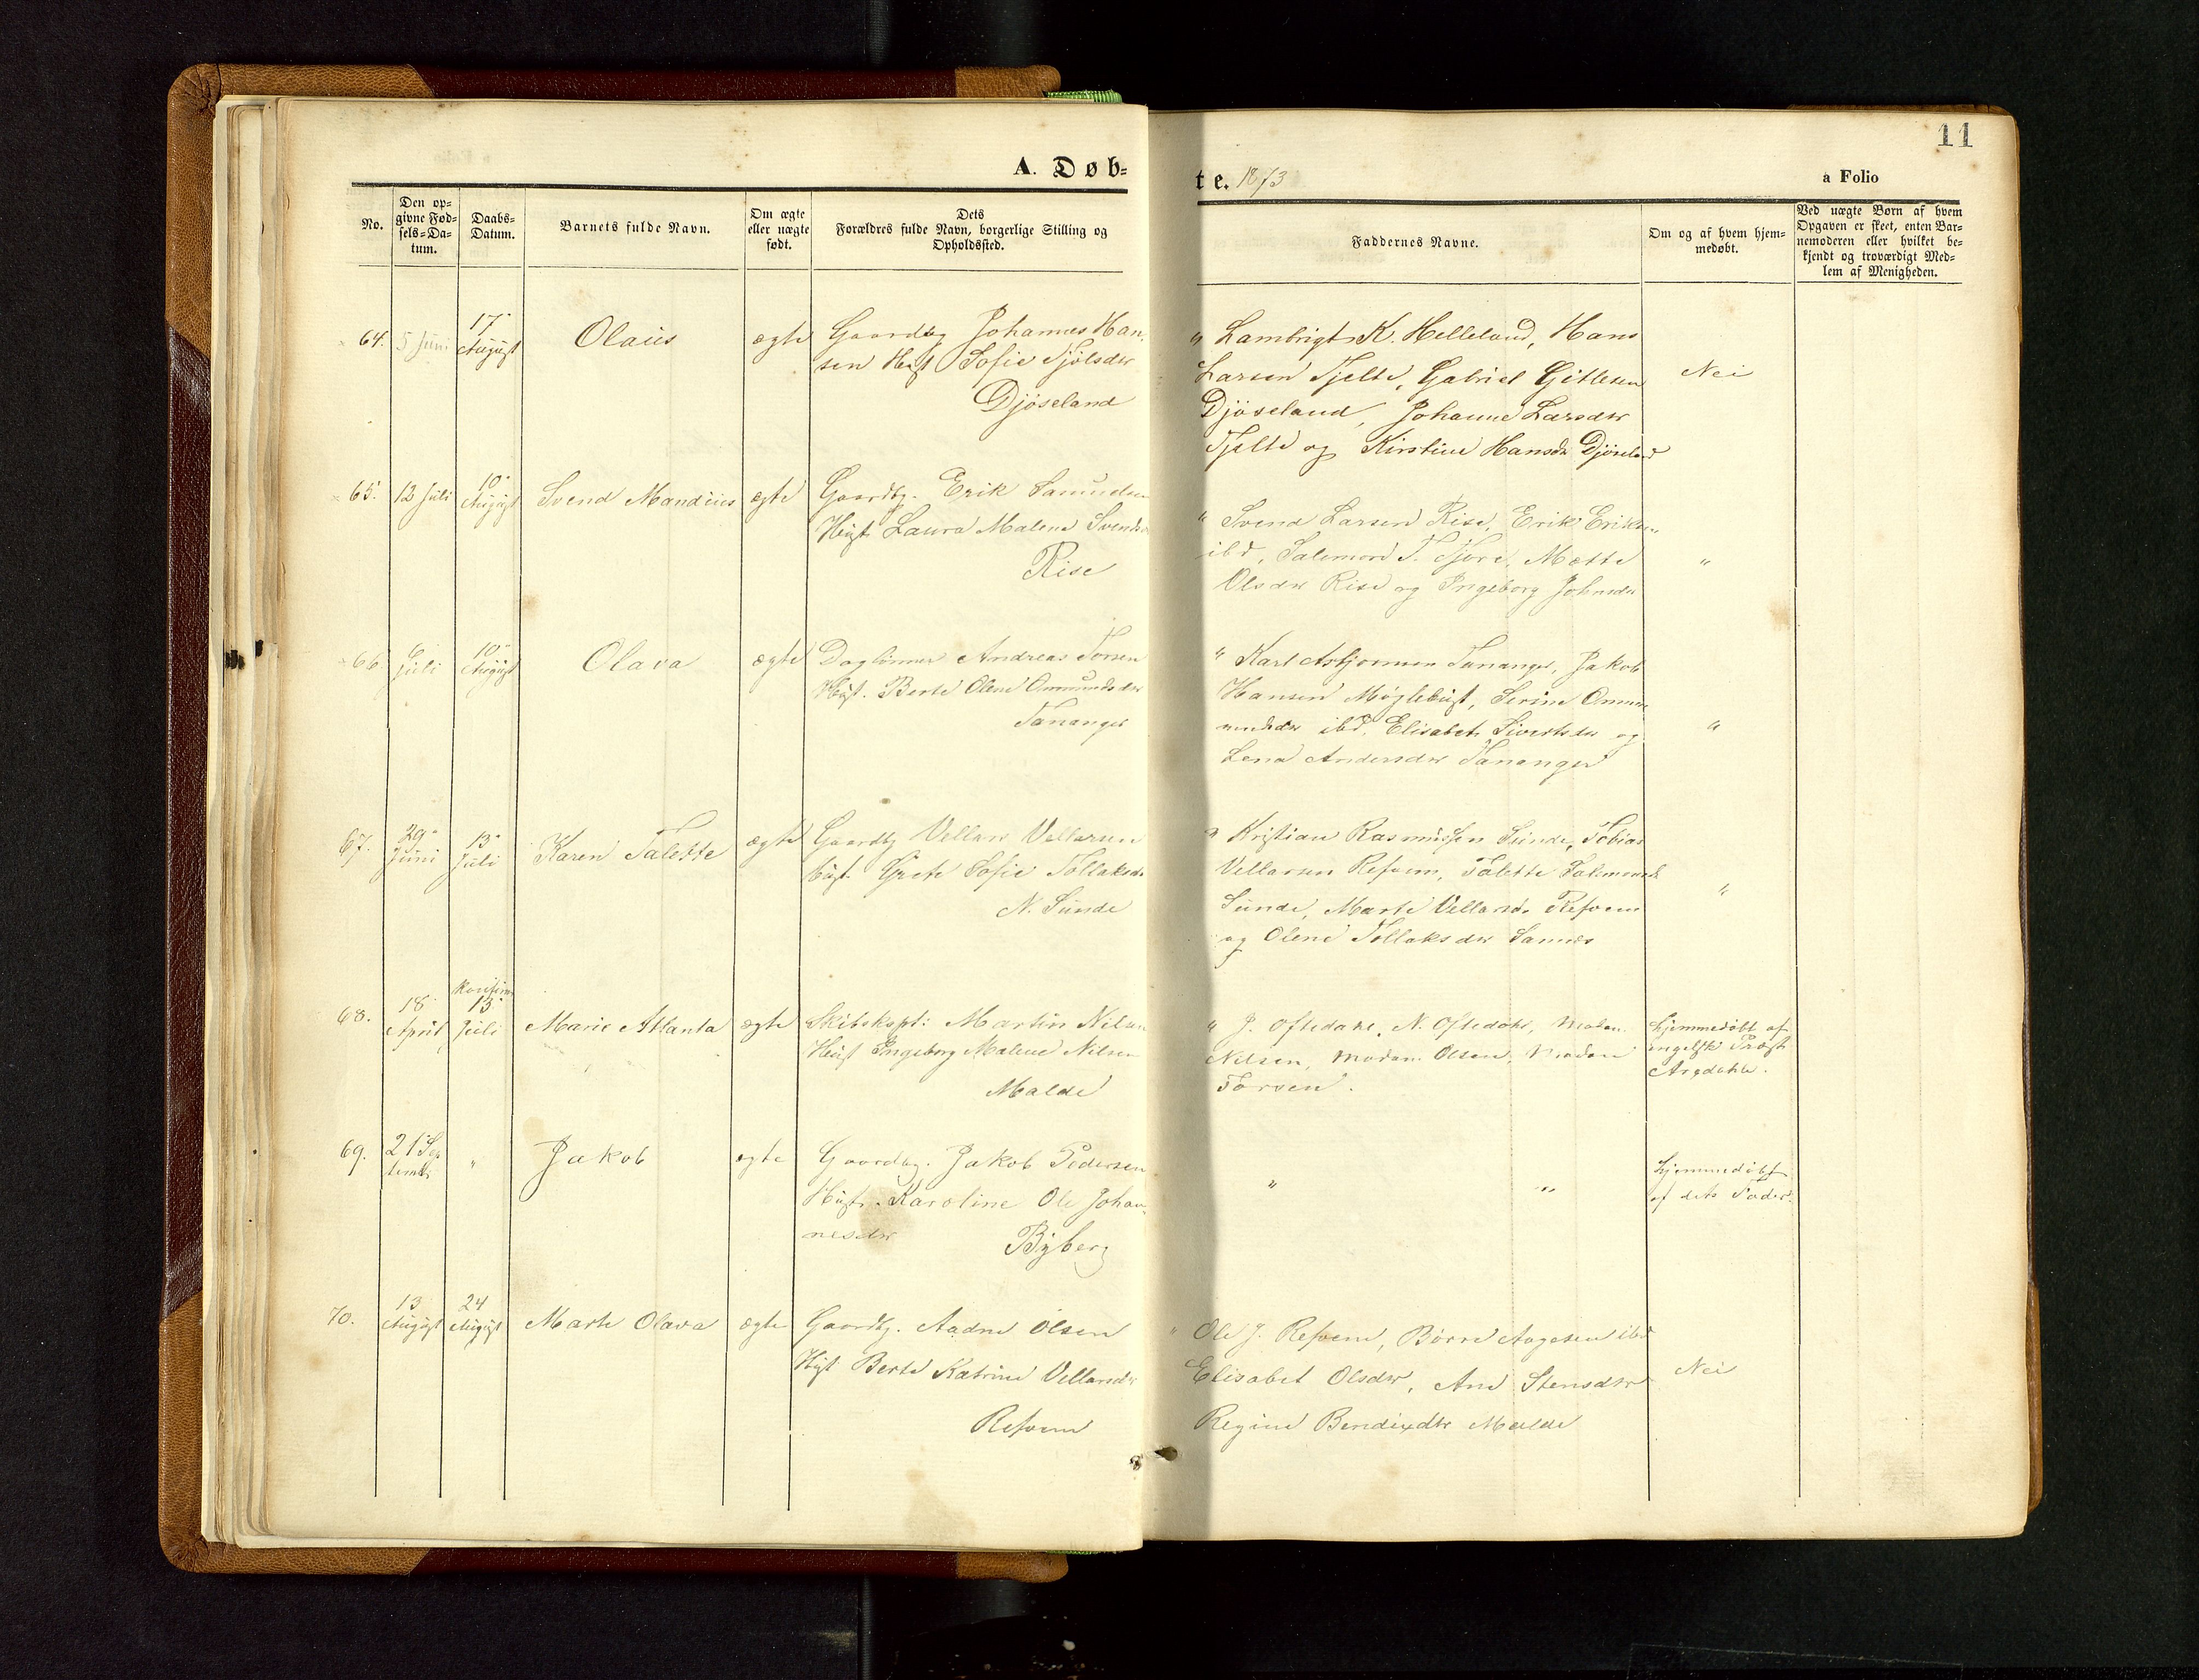 11
A. Døb-
te. 1873
a Folio
No.
Den op-
givne Fød-
sels-Da-
tum.
Daabs-
Datum.
Barnets fulde Navn.
Om ægte
eller uægte
født.
Dets
Forældres fulde Navn, borgerlige Stilling og
Opholdssted.
Faddernes Navne.
Om og af hvem hjem-
medøbt.
Ved uægte Børn af hvem
Opgaven er skeet, enten Bar-
nemoderen eller hvilket be-
kjendt og troværdigt Med-
lem af Menigheden.
64.
5 Juni
17
August
Olaus
ægte
Gaardbg Johannes Han-
sen Hust Sofie
Djöseland
" Lambrigt K. Helleland, Hans
Larsen Tjelte, Gabriel Gitlesen
Djöseland, Johanne Larsdtr
Tjelte og Kirstine Hansdr Djöseland
Nei
65.
12 Juli
10
August
Svend Mandius
ægte
Gaardbg. Erik Samuelsen
Hust Laura Malene Svendsdr
Rise
" Svend Larsen Rise, Erik Eriksen
ibd, Salemon T. Tjore, Mætte
Olsdtr Rise og Ingeborg Johnsdr
"
66
6
Juli
10
August
Olava
ægte
Daglönner Andreas Torsen
Hust. Berte Olene Ommundsdtr
Tananger
" Karl Asbjornsen Tananger, Jakob
Hansen Möglebust, Serine Ommu
mundsdtr ibd. Elisabet Sivertsdtr og
Lena Andersdtr Tananger
"
67.
29
Juni
13
Juli
Karen Talette
ægte
Gaardbg Vellas Vellasen
Hust. Grete Sofie Tollaksdr
N. Sunde
" Kristian Rasmussen Sunde, Tobias
Vellasen Refvem, Talette Salemonsdr
Sunde, Marte Vellasdr Refvem
og Olene Tollaksdtr Sannes
"
68.
18
April
13
Juli
Marie Atlanta
ægte
Skibskpt: Martin Nilsen
Hust Ingeborg Malene Nilsen
Malde
" J. Oftedahl, N. Oftedahl, Madam
Nilsen, Madam Olsen, Madam
Torsen.
Hjemmedöbt af
engelsk Præst
69.
21 Sep
tembr
"
Jakob
ægte
Gaardbg. Jakob Pedersen
Hust. Karoline Ole Johan-
nesdtr
Byberg
"
"
Hjemmedöbt
af dets Fader
70.
13
August
24
August
Marte Olava
ægte
Gaardbg. Aadne Olsen
Hust Berte Katrine Vellasdr
Refvem
" Ole J. Refvem, Börre Aagesen ibd
Elisabet Olsdtr, Ane Stensdtr
Regine Bendixdtr Malde
Nei